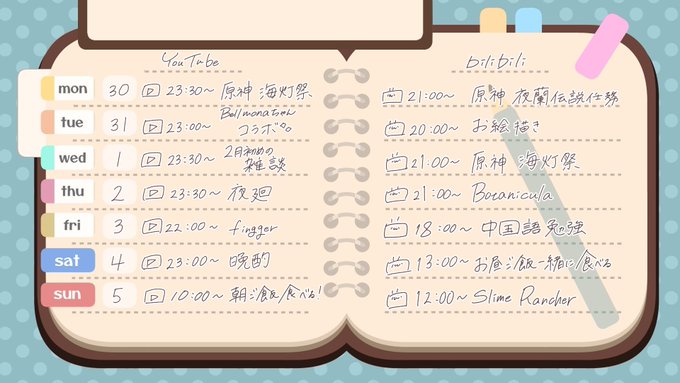 YouTube
mon 30 23:30~ 原神 海灯祭
tue 31 23:00~ Bellmonaちゃん コラボ
wed 1 23:30~ 2月初めの 雑談
thu 2 23:30~ 夜廻
fri 3 22:00~ fingger
sat 4 23:00~ 晩酌
sun 5 10:00~ 朝ご飯食べる!
bilibili
21:00~ 原神 夜蘭伝説任務
20:00~ お絵描き
21:00~ 原神 海灯祭
21:00~ Botanicula
18:00~ 中国語勉強
13:00~ お昼ご飯一緒に食べる
12:00~ Slime Rancher